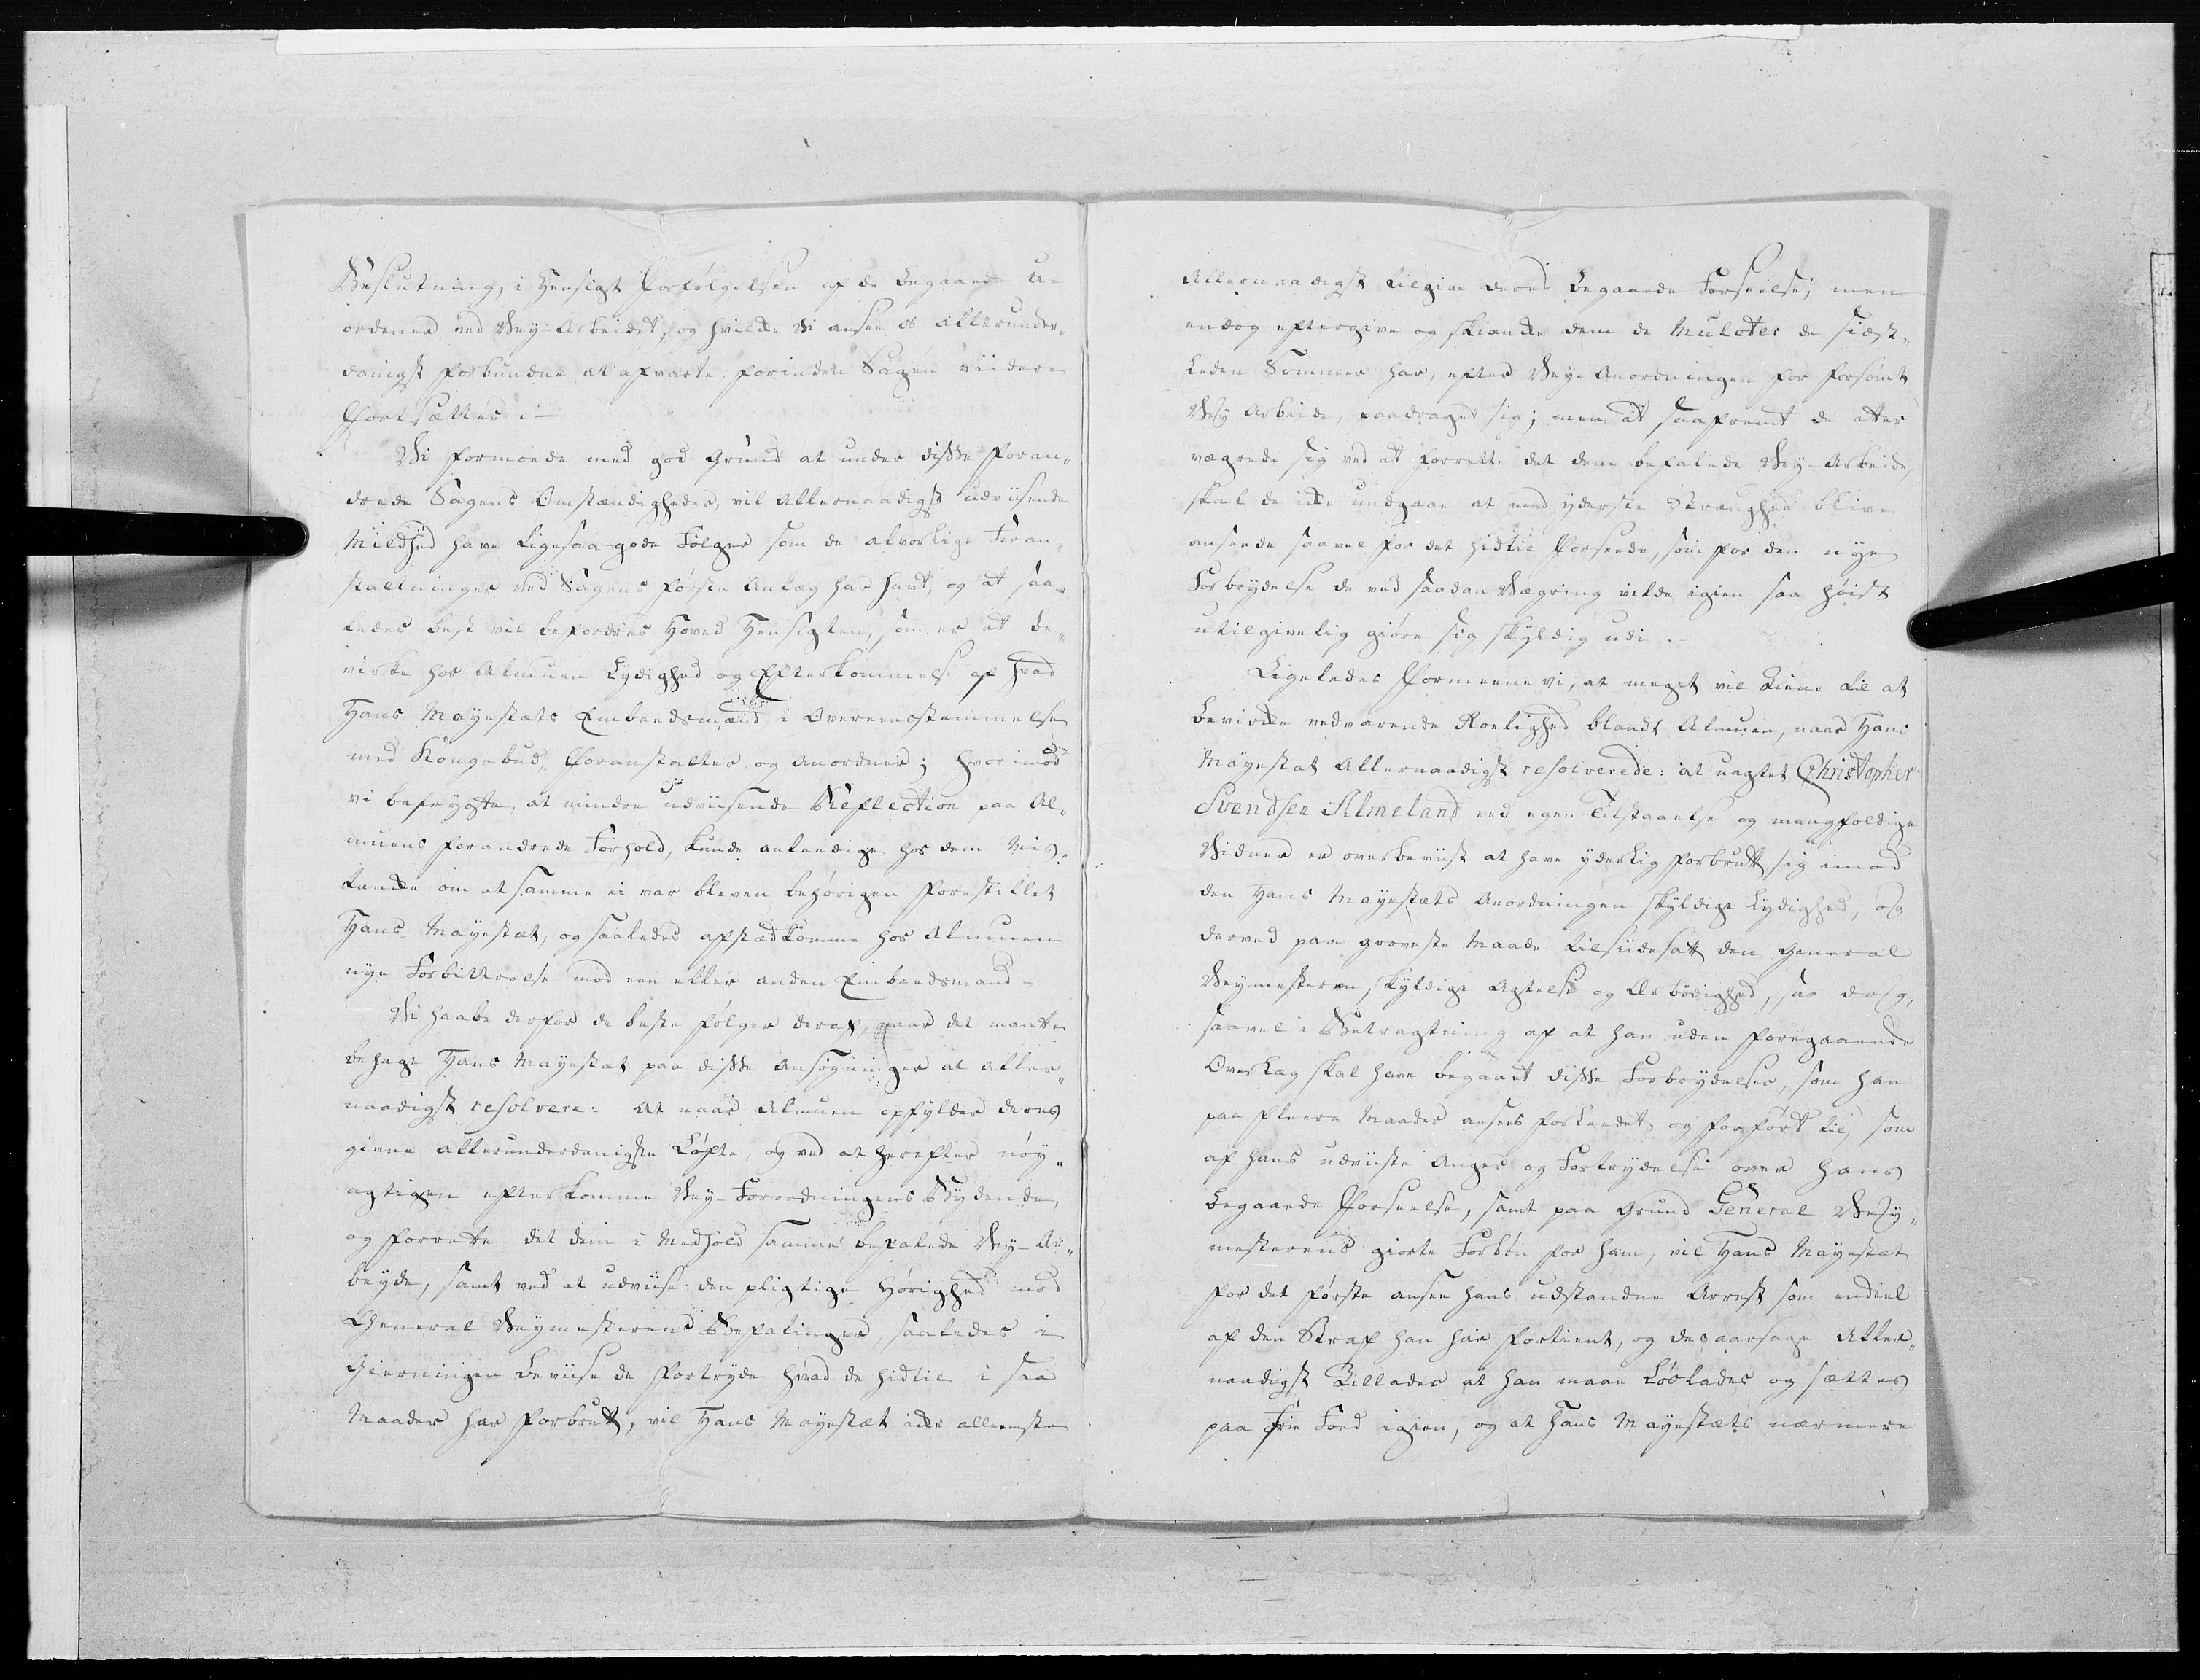 Beslutning, i Hensigt Forfølgelsen af de begaaede U-
ordener ved Vey-Arbeidet, og hvilke Vi ansee os allerunder„
danigst forbundne at afvarte, forinden Sagen viidere
fortsættes.—
Vi formoede med god Grund at under disse foran„
drede Sagens Omstændigheder, vil allernaadigst udviisende
Mildhed have ligesaa gode Følger som de alvorlige Foran„
staltninger ved Sagens første Anlæg har havt, og at saa„
ledes best vil befordres Hoved Hensigten, som er at be„
virke hos Almuen Lydighed og Efterkommelse af hvad
Hans Mayestæts Embedsmænd i Overeensstemmelse
med Kongebud, foranstalter og anordner; hvorimod
vi befrygte, at mindre udviisende Reflection paa Al„
muens forandrede Forhold, kunde anledige hos dem Mis„
tanke om at samme ei var bleven behørigen forestillet
Hans Mayestæt, og saaledes afstedkomme hos Almuen
nye Forbittrelse mod een eller anden Embedsmand—
Vi haabe derfor de beste følger deraf, naar det maatte
behage Hans Mayestæt paa disse Ansøgninger at aller„
naadigst resolvere: At naar Almuen opfylder deres
givne allerunderdanigste Løfte, og ved at herefter nøy„
agtigen efterkomme Vey-Forordningens Bydende,
og forrette det dem i Medhold samme befalede Vey-Ar„
beyde, samt ved at udviise den pligtige Hørighed mod
General Veymesterens Befalinger, saaledes i
Gierningen beviise de fortryde hvad de hidtil i saa
Maader har forbrudt, vil Hans Mayestæt ikke alleeneste
allernaadigst tilgive deres begaaede Forseelse; men
endog eftergive og skiænke dem de Mulcter de sidst„
leden Sommer har, efter Vey-Anordningen for forsømt
Vey Arbeide, paadraget sig; men at saafremt de atter
vægrede sig ved at forrette det dem befalede Vey-Arbeide,
skal de ikke undgaae at med yderste Strænghed blive
ansee­de saavel for det hidtil forseede, som for den nye
Forbrydelse de ved saadan Vægring vilde igien saa høist
utilgivelig giøre sig skyldig udi.—
Ligeledes formeene vi, at meget vil tiene til at
bevirke vedvarende Roelighed blandt Almuen, naar Hans
Mayestæt Allernaadigst resolverede: at uagtet Christopher
Svendsen Almeland ved egen Tilstaaelse og mangfoldige
Vidner er overbeviist at have yderlig forbrudt sig imod
den Hans Mayestæts Anordningen skyldige Lydighed, og
derved paa groveste Maade tilsiidesatt den General
Veymesteren skyldige Agtelse og Ærbødighed, saa dog,
saavel i Betragtning af at han uden foregaaende
Overlæg skal have begaaet disse Forbrydelser, som han
paa fleere Maader ansees forleedet og forført til, som
af hans udviiste Anger og Fortrydelse over hans
begaaede forseelse, samt paa Grund General Vey„
mesterens giorte Forbøn for ham, vil Hans Mayestæt
for det første ansee hans udstandne Arrest som endeel
af den Straf han har fortient, og desaarsage Aller„
naadigst tillades at han maae løslades og sættes
paa frie Foed igien, og at Hans Mayestæts nærmere